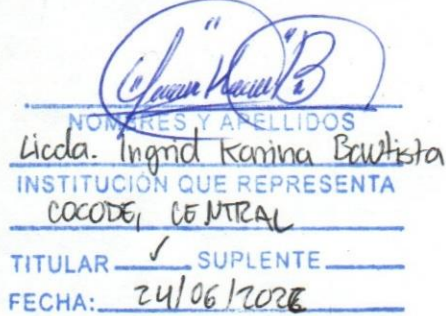 NOMBRES Y APELLIDOS
Licda. Ingrid Karina Bautista
INSTITUCIÓN QUE REPRESENTA
COCODE, CENTRAL
TITULAR ✓ SUPLENTE
FECHA: 24/06/2026